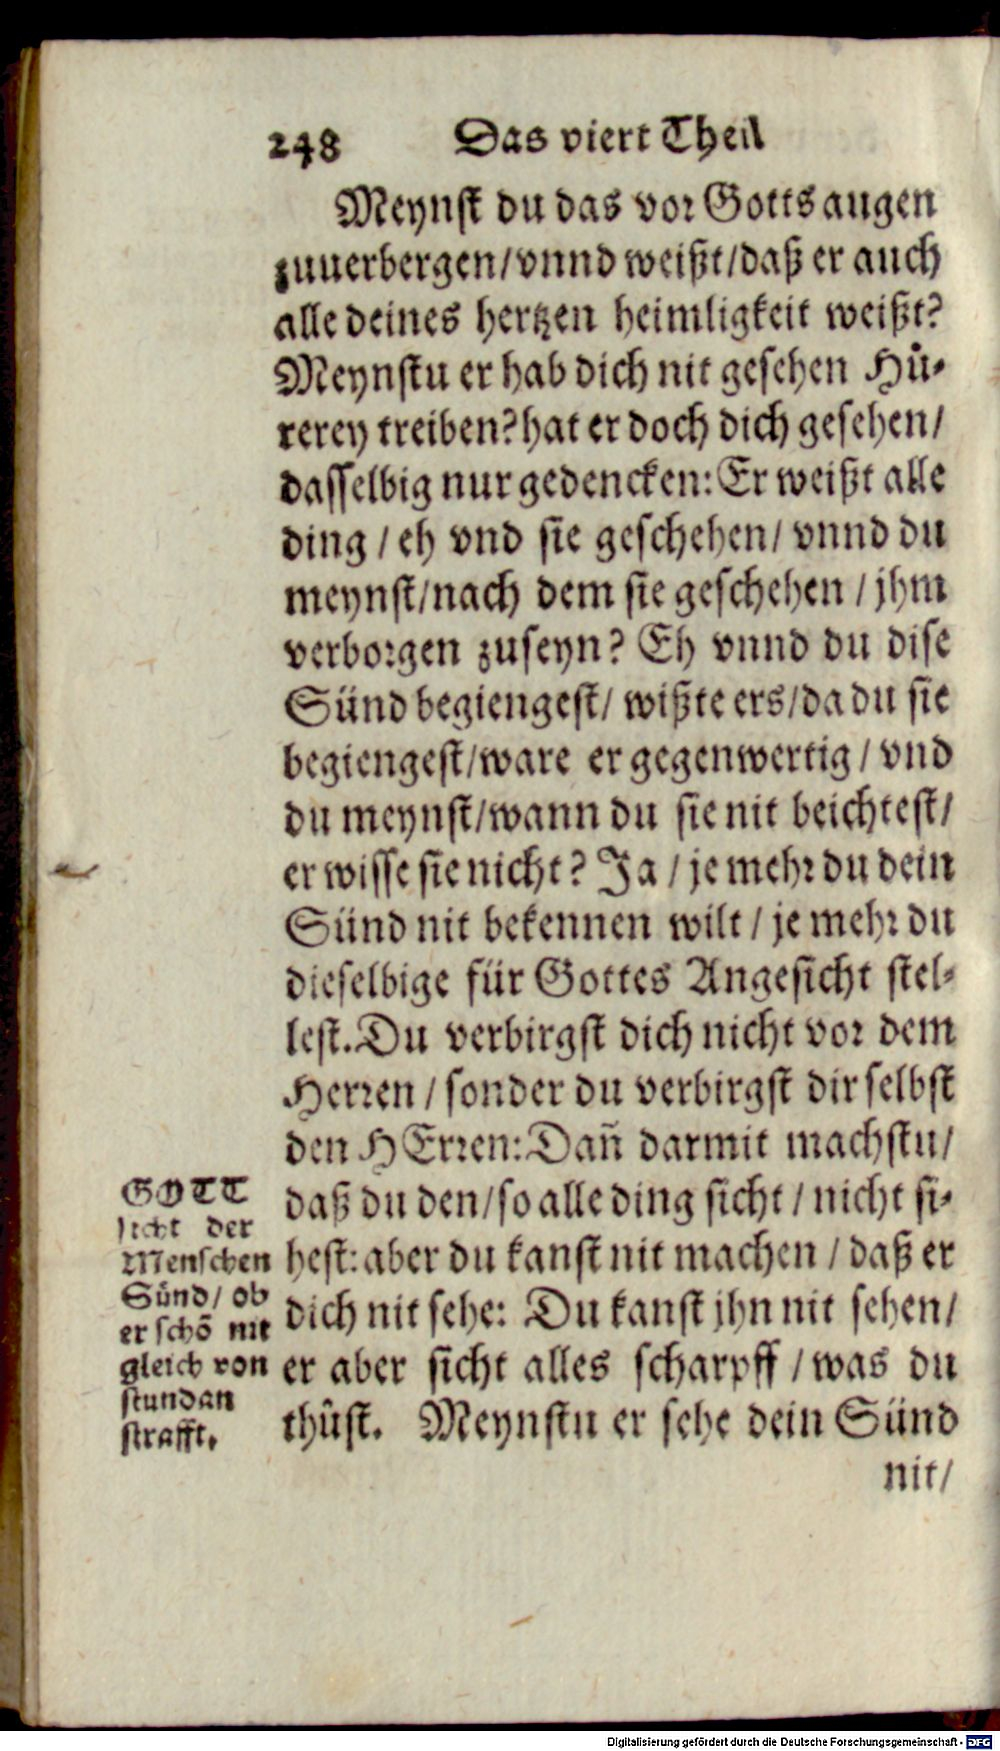 248 Das viert Theil
Meynst du das vor Gotts augen
zuuerbergen/vnnd weißt/daß er auch
alle deines hertzen heimligkeit weißt?
Meynstu er hab dich nit gesehen Hů-
rerey treiben? hat er doch dich gesehen/
dasselbig nur gedencken: Er weißt alle
ding / eh vnd sie geschehen/ vnnd du
meynst/nach dem sie geschehen / jhm
verborgen zuseyn? Eh vnnd du dise
Sünd begiengest/ wißte ers/da du sie
begiengest/ware er gegenwertig / vnd
du meynst/wann du sie nit beichtest/
er wisse sie nicht? Ja / je mehr du dein
Sünd nit bekennen wilt / je mehr du
dieselbige für Gottes Angesicht stel-
lest. Du verbirgst dich nicht vor dem
Herren / sonder du verbirgst dir selbst
den HErren: Dañ darmit machstu/
daß du den/so alle ding sicht / nicht si-
hest: aber du kanst nit machen / daß er
dich nit sehe: Du kanst jhn nit sehen/
er aber sicht alles scharpff / was du
thůst. Meynstu er sehe dein Sünd
nit/
GOTT
sicht der
Menschen
Sünd/ ob
er schō nit
gleich von
stundan
strafft.
Digitalisierung gefördert durch die Deutsche Forschungsgemeinschaft - DFG